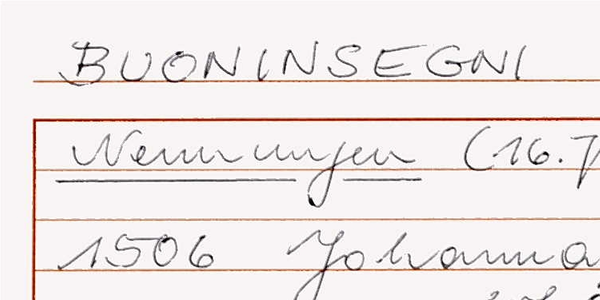 BUONINSEGNI
Nennungen (16.7
1506 Johanna